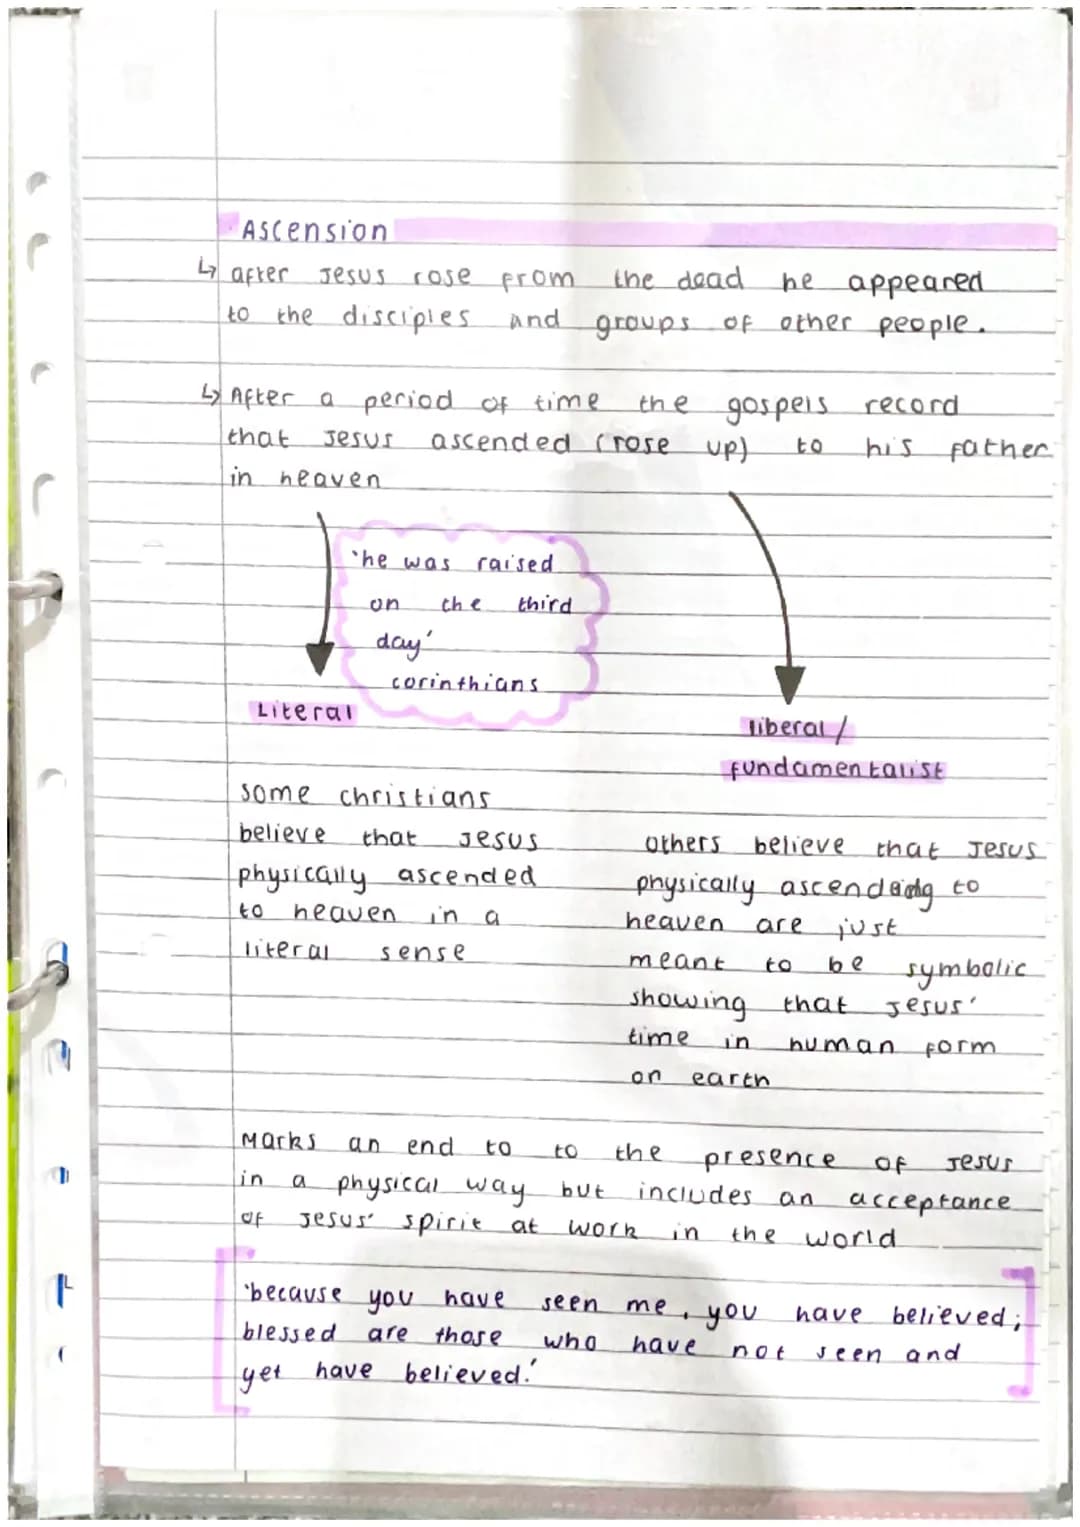 Ascension
↳ after Jesus rose from the dead he appeared
to the disciples and groups of other people.
↳ After a period of time the gospels record
that Jesus ascended (rose up) to his father
in heaven
'he was raised
on the third
day'
corinthians
Literal
some christians
believe that Jesus
physically ascended
to heaven in a
literal sense
liberal/
fundamentalist
others believe that Jesus
physically ascending to
heaven are just
meant to be symbolic
showing that Jesus'
time in human form
on earth
Marks an end to to the presence of Jesus
in a physical way but includes an acceptance
of Jesus' spirit at work in the world
'because you have seen me, you have believed;
blessed are those who have not seen and
yet have believed.'